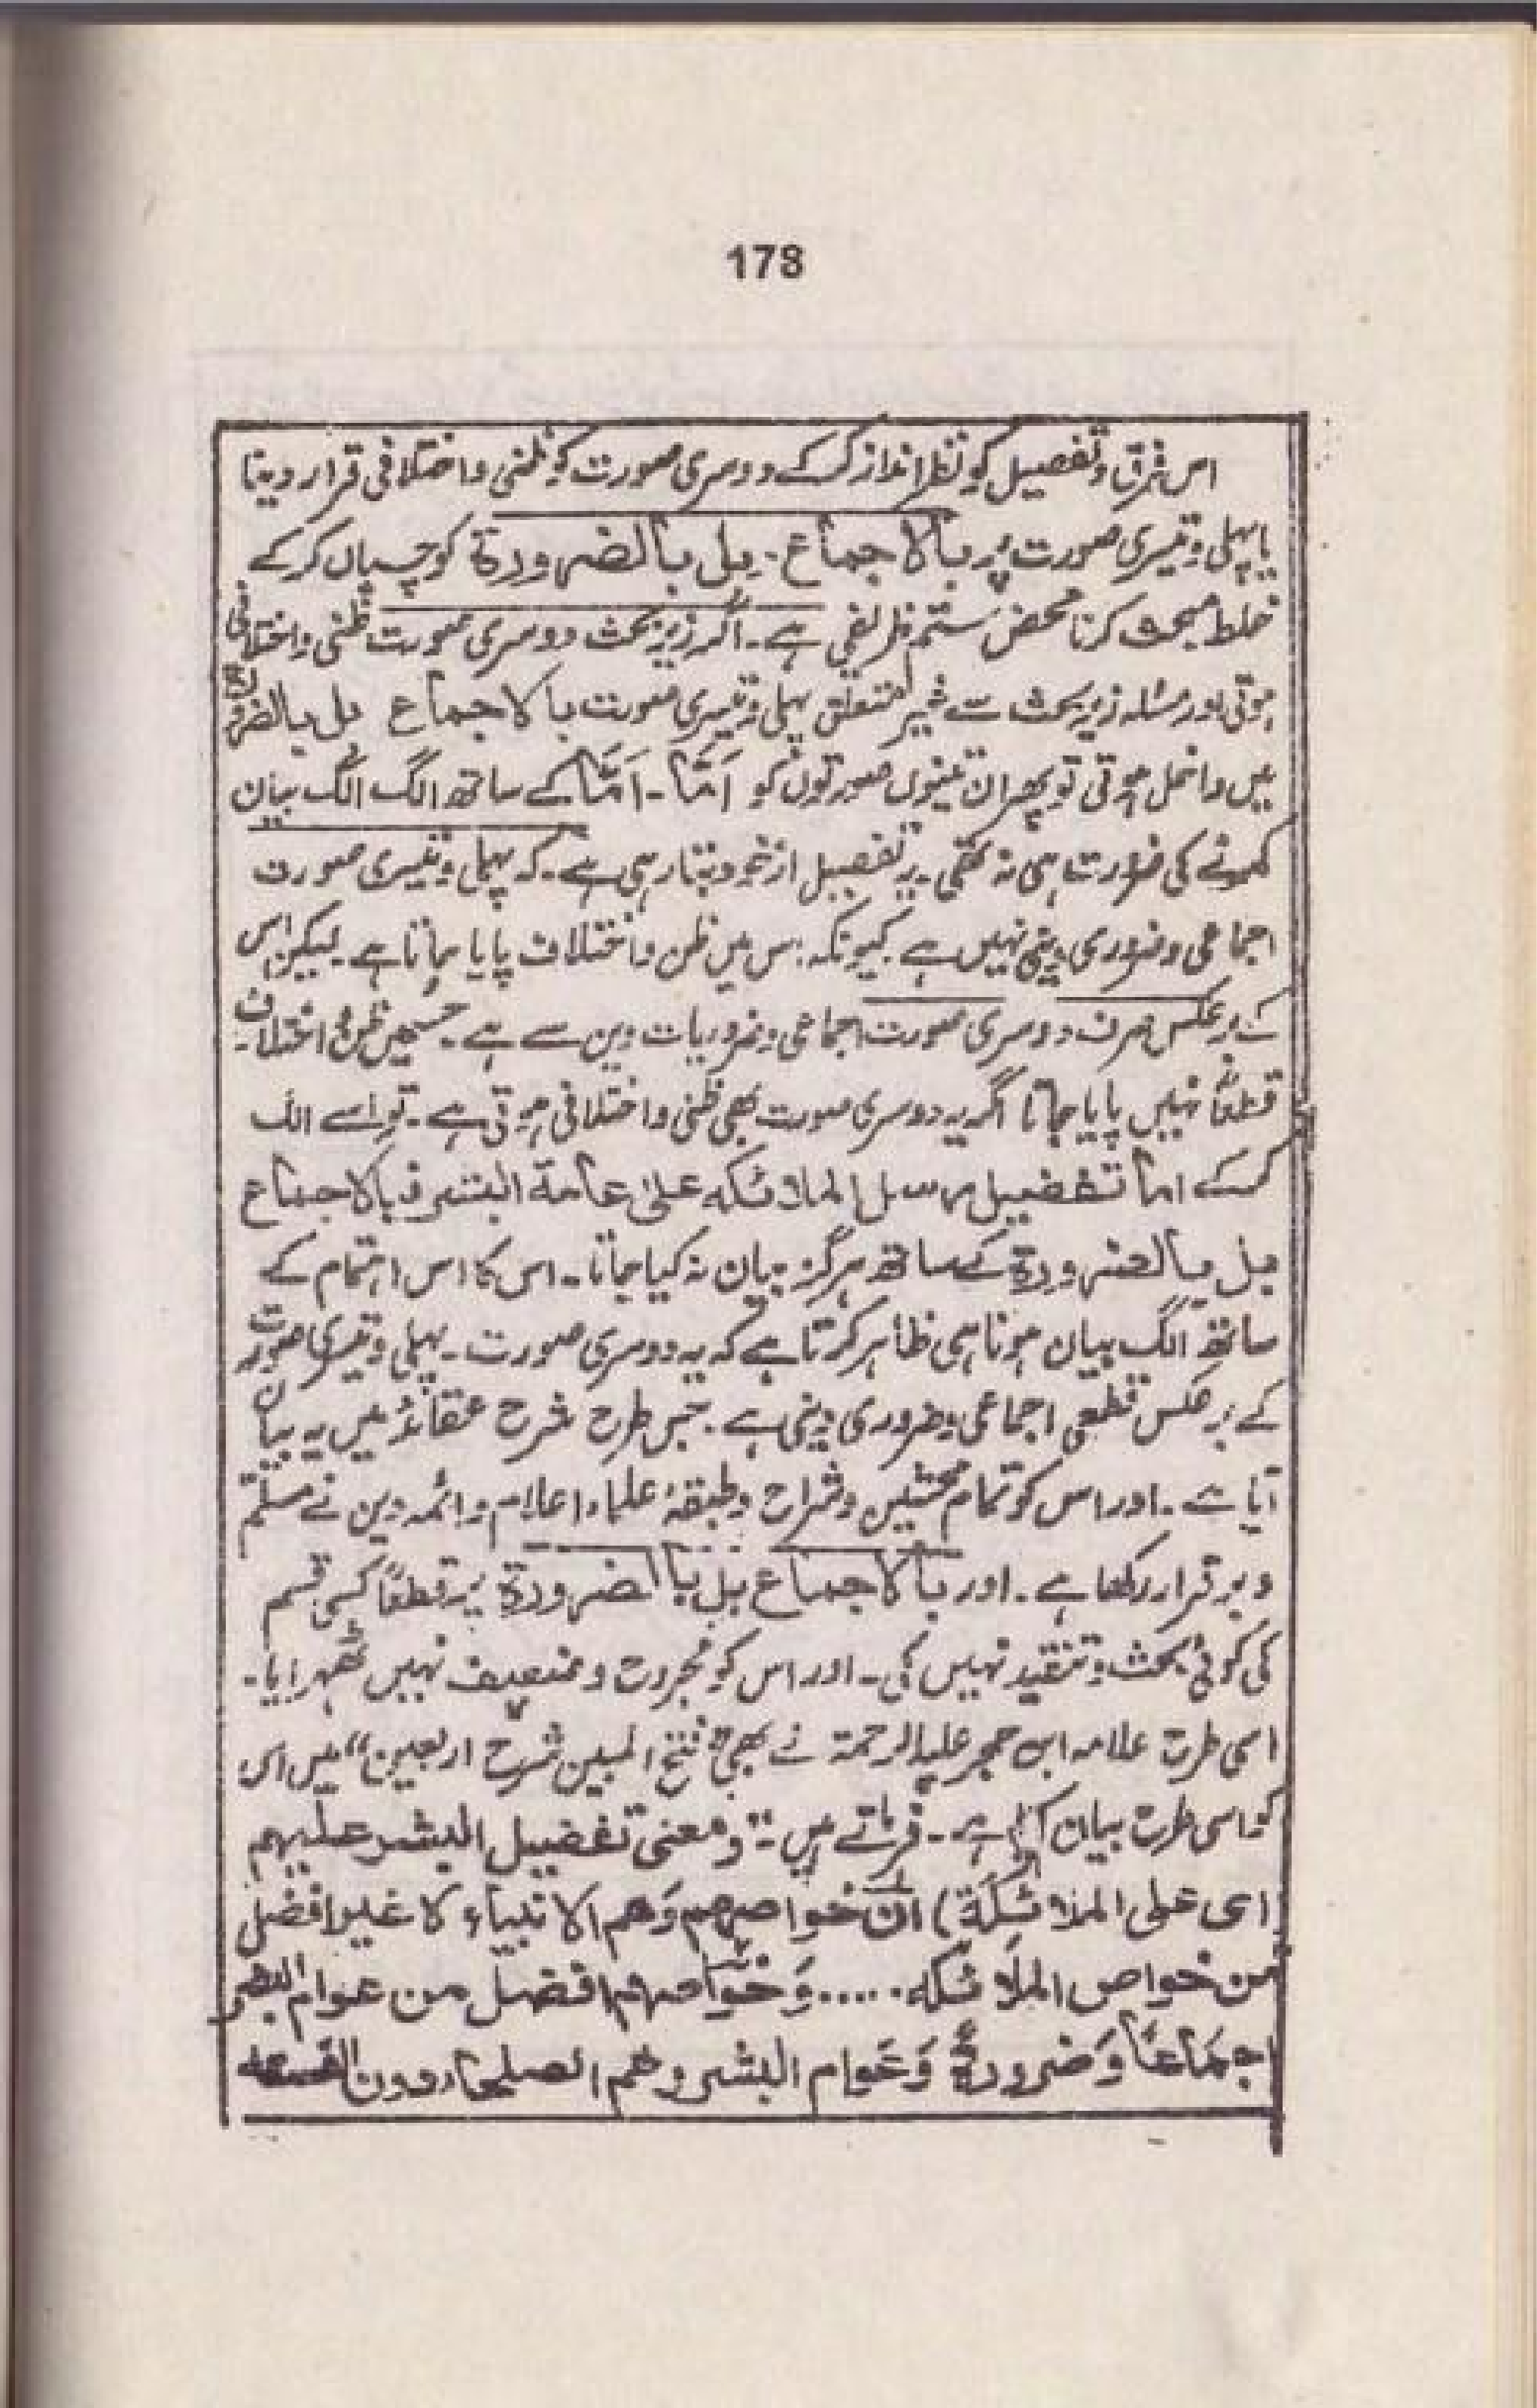 178
اس فرق و تفصیل کو نظر انداز کر کے دوسری صورت کو ظنی و اختلافی قرار دینا
یا پہلی و تیسری صورت پر بالاجماع۔ بل بالضرورة کو چسپاں کر کے
خلط مبحث کرنا محض ستم ظریفی ہے۔ اگر زیر بحث دوسری صورت ظنی و اختلافی
ہوتی اور مسئلہ زیر بحث سے غیر متعلق پہلی و تیسری صورت بالاجماع بل بالضرورة
میں داخل ہوتی تو پھر ان تینوں صورتوں کو اَمَّا۔ اَمَّا کے ساتھ الگ الگ بیان
کرنے کی ضرورت ہی نہ تھی۔ یہ تفصیل از خود بتا رہی ہے۔ کہ پہلی و تیسری صورت
اجماعی و ضروری دینی نہیں ہے کیونکہ اس میں ظن و اختلاف پایا جاتا ہے۔ لیکن اس
کے برعکس صرف دوسری صورت اجماعی و ضروریات دین سے ہے۔ جسمیں ظن و اختلاف
قطعاً نہیں پایا جاتا اگر یہ دوسری صورت بھی ظنی و اختلافی ہوتی ہے۔ تو اسے الگ
کر کے اما تفضیل رسل الملائکہ علیٰ عامة البشر فبالاجماع
بل بالضرورة کے ساتھ ہرگز بیان نہ کیا جاتا۔ اس کا اس اہتمام کے
ساتھ الگ بیان ہونا ہی ظاہر کرتا ہے کہ یہ دوسری صورت۔ پہلی و تیسری صورت
کے برعکس قطعی اجماعی و ضروری دینی ہے۔ جس طرح شرح عقائد میں یہ بیان
آیا ہے۔ اور اس کو تمام محشیین و شراح و طبقۂ علماء اعلام و ائمہ دین نے مسلّم
و برقرار رکھا ہے۔ اور بالاجماع بل بالضرورة پر قطعاً کسی قسم
کی کوئی بحث و تنقید نہیں کی۔ اور اس کو مجروح و ضعیف نہیں ٹھہرایا۔
اسی طرح علامہ ابن حجر علیہ الرحمة نے بھی "فتح المبین شرح اربعین" میں اس
کو اسی طرح بیان کیا ہے۔ فرماتے ہیں :۔ و معنی تفضیل البشر علیہم
(ای علی الملائِکَة) ان خواصہم وَهم الانبیاء لا غیر افضل
من خواص الملَائکه ..... وَخواصهم افضل من عوام البشر
اجمَاعاً وَضرورةً وَعَوام البشر وهم الصلحاء دون الفسقه